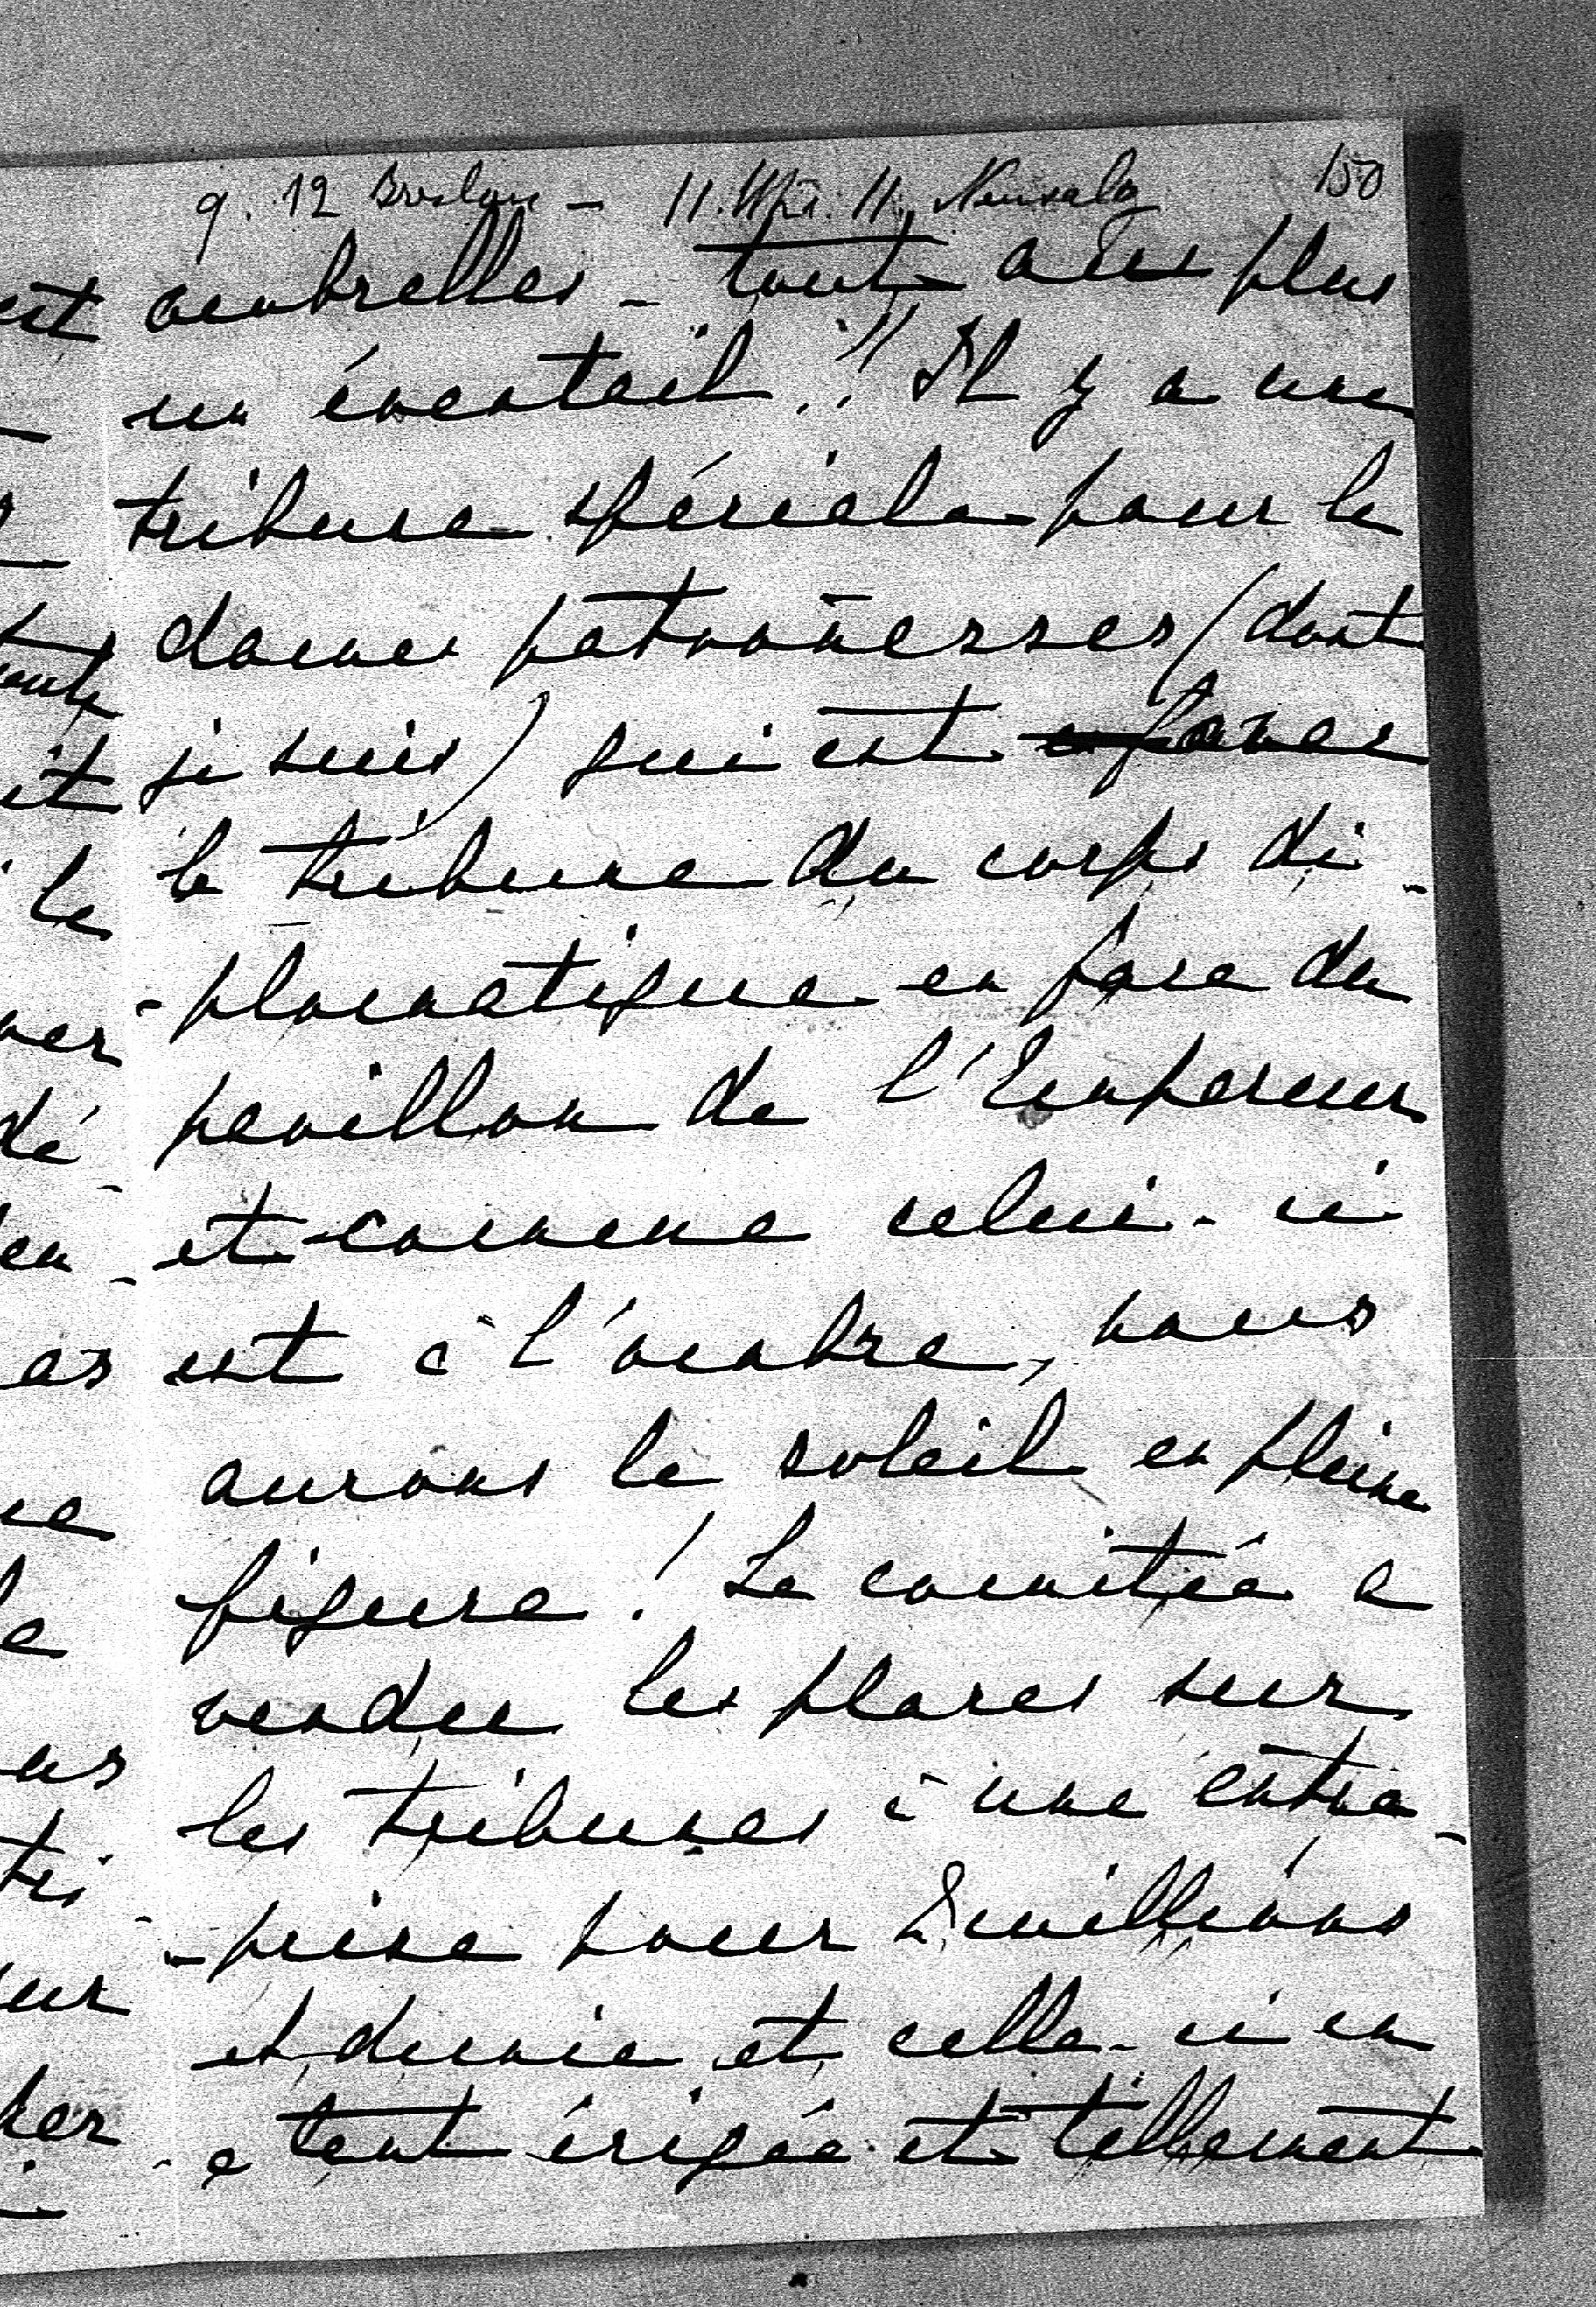 9. 12 Breslau – 11. Uhr. 11, Neusalz 150
ombrelles – tout au plus
un éventail!! Il y a une
tribune spéciale pour le
dames patronesses (dont
je suis) qui est avec
la tribune du corps di-
-plomatique en face du
pavillon de l'Empereur
et comme celui-ci
est à l'ombre, nous
aurons le soleil en pleine
figure! Le comitée a
vendu les places sur
les tribunes à une entre-
-prise pour 2 millions
et demie et celle-ci en
a tant érigée et tellement